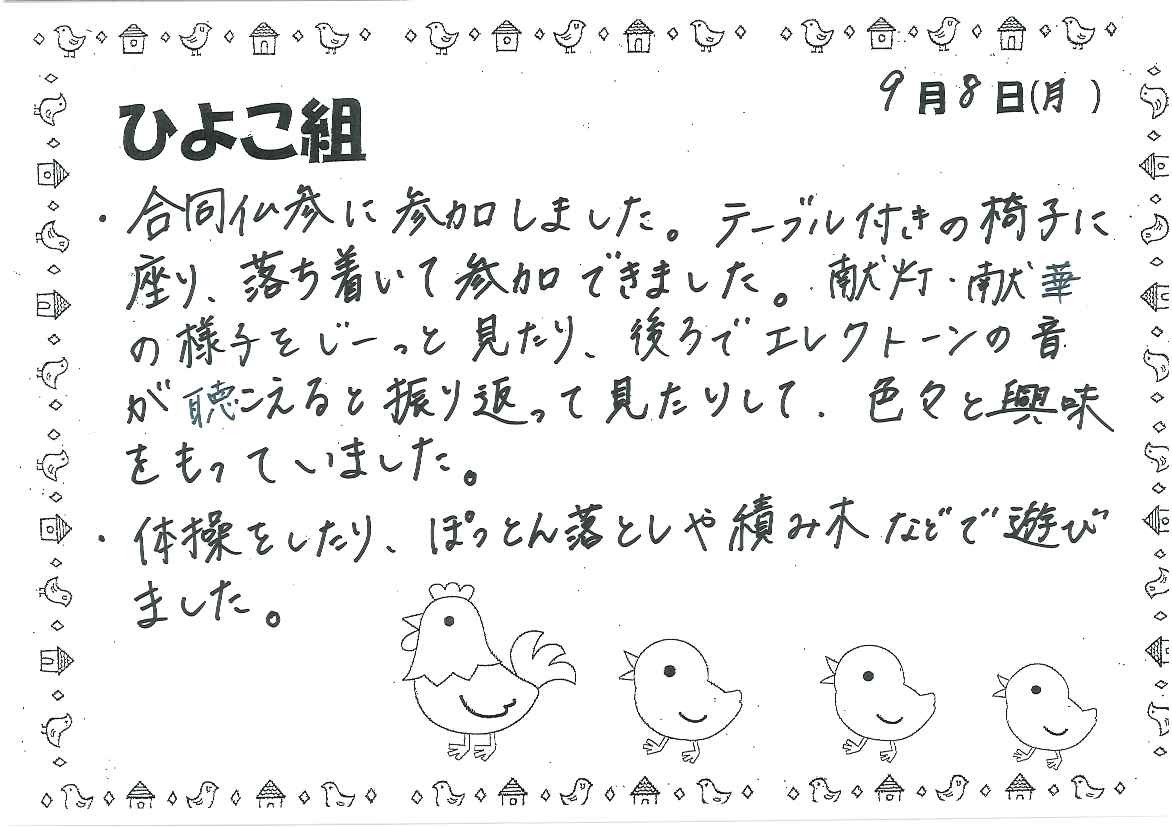 9月8日(月)
ひよこ組
・合同仏参に参加しました。テーブル付きの椅子に
座り、落ち着いて参加できました。献灯・献華
の様子をじーっと見たり、後ろでエレクトーンの音
が聴こえると振り返って見たりして、色々と興味
をもっていました。
・体操をしたり、ぽっとん落としや積み木などで遊び
ました。